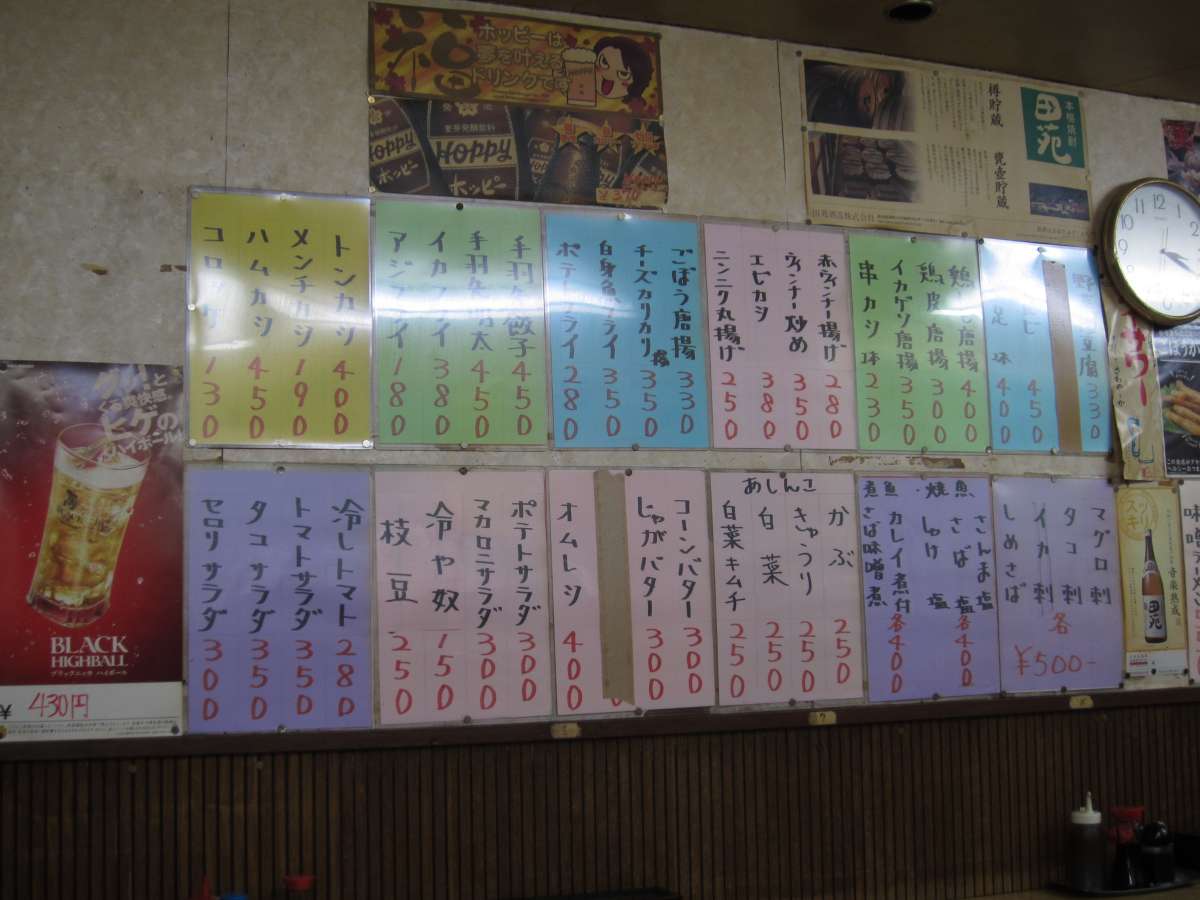 ホッピーは
夢を叶える
ドリンクです
HOPPY
ホッピー
本格焼酎
田苑
樽貯蔵
甕壺貯蔵
田苑酒造株式会社
トンカツ 400
メンチカツ 190
ハムカツ 450
コロッケ 130
手羽先餃子 450
手羽先明太 450
イカフライ 380
アジフライ 180
ごぼう唐揚 330
チーズカリカリ揚 350
白身魚フライ 350
ポテトフライ 280
赤ウインナー揚げ 280
ウインナー炒め 350
エビカツ 380
ニンニク丸揚げ 250
400
鶏皮唐揚 300
イカゲソ唐揚 350
串カツ 1本 230
330
450
足 1本 400
冷しトマト 280
トマトサラダ 350
タコサラダ 350
セロリサラダ 300
ポテトサラダ 300
マカロニサラダ 300
冷や奴 150
枝豆 250
コーンバター 300
じゃがバター 300
オムレツ 400
おしんこ
かぶ 250
きゅうり 250
白菜 250
白菜キムチ 250
焼魚
さんま塩
さば塩
しゃけ塩
各400
煮魚
カレイ煮付
さば味噌煮
各400
マグロ刺
タコ刺
イカ刺
しめさば
各
¥500-
ヒゲの
ハイボール
BLACK
HIGHBALL
ブラックニッカ ハイボール
¥ 430円
田苑